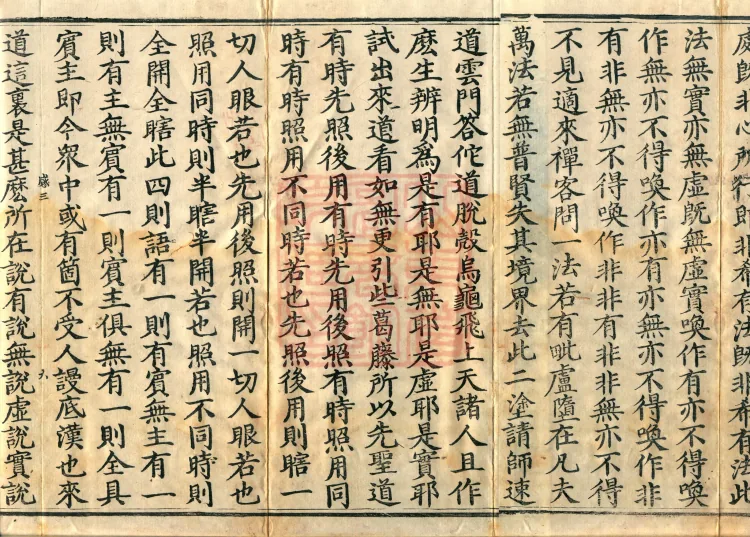 處旣非心所行卽非有法旣非有有法此
法無實亦無虛旣無虛實喚作有亦不得喚
作無亦不得喚作亦有亦無亦不得喚作非
有非無亦不得喚作非非有非非無亦不得
不見適來禪客問一法若有毗盧墮在凡夫
萬法若無普賢失其境界去此二塗請師速
道雲門答佗道脫殼烏龜飛上天諸人且作
麽生辨明爲是有耶是無耶是虛耶是實耶
試出來道看如無更引些葛藤所以先聖道
有時先照後用有時先用後照有時照用同
時有時照用不同時若也先照後用則瞎一
切人眼若也先用後照則開一切人眼若也
照用同時則半瞎半開若也照用不同時則
全開全瞎此四則語有一則有賓無主有一
則有主無賓有一則賓主俱無有一則全具
賓主即今衆中或有箇不受人謾底漢也來
道這裏是甚麽所在說有說無說虛說實說